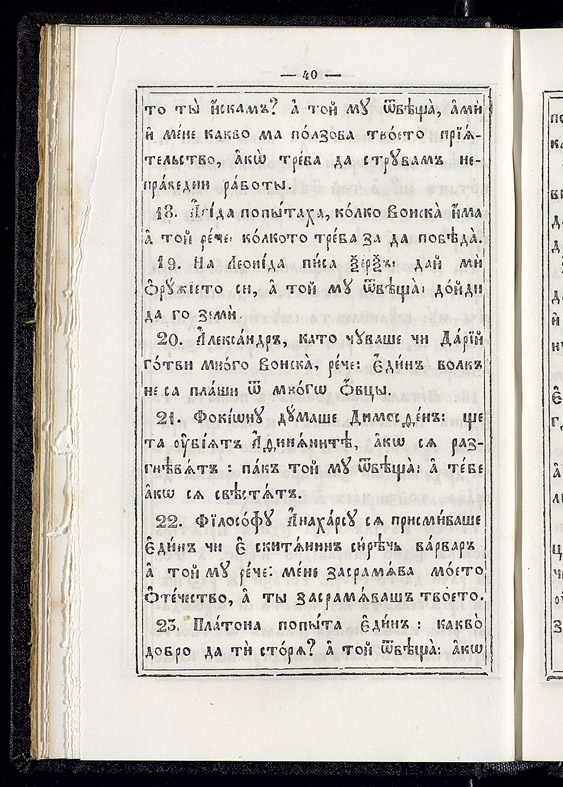 — 40 —
то ты̀ и҆скамъ? а҆ той му ѿвѣща̀, а҆мѝ
и҆ ме́не какво ма по́лзова тво́ето прїѧ́-
тельство, а҆кѡ̀ тре́ба да стру́вамъ не-
пра́ведни ра́боты.
18. А҆гі́да попы́таха, ко́лко Вонска̀ и҆́ма
а҆ той ре́че: ко́лкото тре́ба за да побѣ́да̀.
19. На Леоні́да пи́са Ѯерѯъ: дай мѝ
Ѻ҆рꙋжїето си, а҆ той му ѿвѣща̀: до́йди
да гоземѝ.
20. А҆леѯа́ндръ, като чꙋ́ваше чи Да́рїй
го́тви мно́го Вонска̀, ре́че: Є҆ди́нъ волкъ
не са пла́ши ѿ мно́гѡ Ѻ҆вцы.
21. Фокїѡ́нꙋ дꙋ́маше Димосде́нъ: ще
та оу҆бїѧ́тъ А҆динѧ́нитѣ, а҆кѡ сѧ раз-
гнѣвѧ́тъ : па́къ той му ѿвѣща̀: а҆ те́бе
а҆кѡ сѧ свѣстѧ́тъ.
22. Фїлосо́фꙋ А҆наха́рсꙋ сѧ присми́ваше
Є҆ди́нъ чи Є҆ скитѧ́нинъ си́рѣчь ва́рваръ
а҆ той му ре́че: ме́не засрамѧ́ва мо́ето
Ѻ҆те́чество, а҆ ты засрамѧ́вашъ твоето.
23. Пла́тона попы́та Є҆ди́нъ : какво̀
добро да тѝ сто́рѧ? а҆ той ѿвѣща̀: а҆кѡ